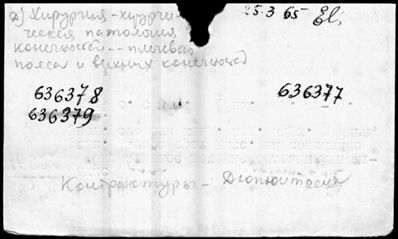 2) Хирургия - хирурги- 25.3 65 El.
ческая патология
конечностей -- плечевого
пояса и верхних конечностей
636378 636377
636379
Контрактуры - Дюпюитрена